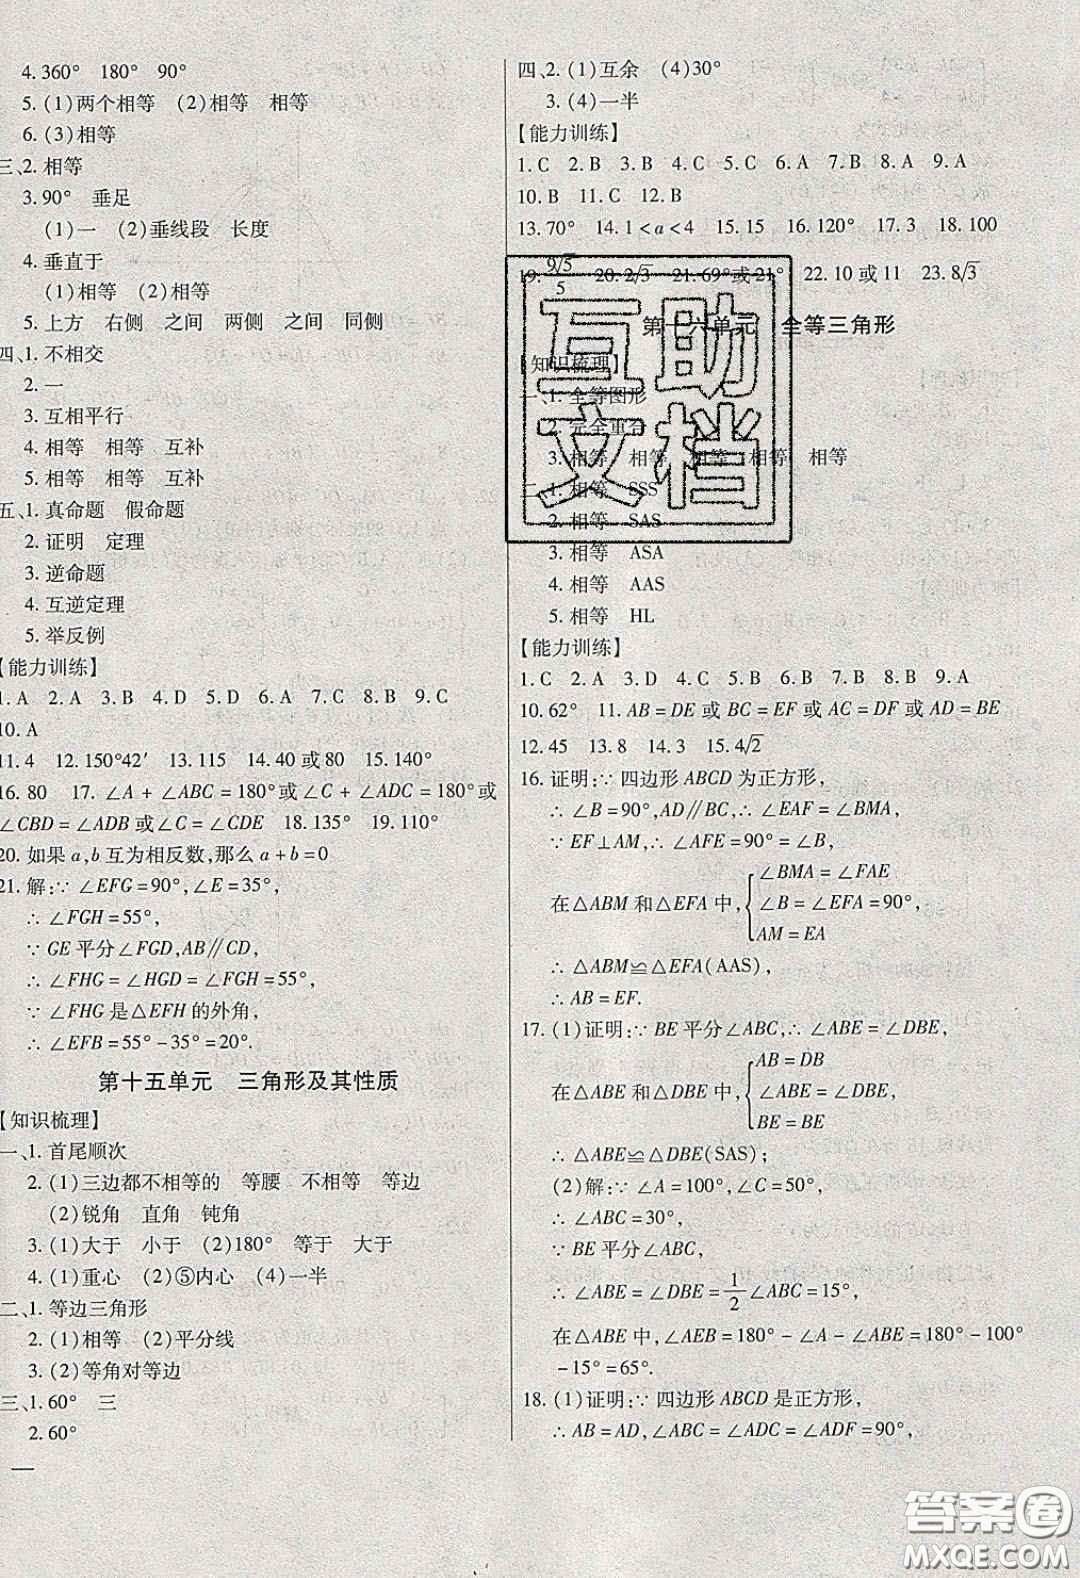 4. 360° 180° 90°
5. (1)两个相等 (2)相等 相等
6. (3)相等
三、2. 相等
3. 90° 垂足
(1)一 (2)垂线段 长度
4. 垂直于
(1)相等 (2)相等
5. 上方 右侧 之间 两侧 之间 同侧
四、1. 不相交
2. 一
3. 互相平行
4. 相等 相等 互补
5. 相等 相等 互补
五、1. 真命题 假命题
2. 证明 定理
3. 逆命题
4. 互逆定理
5. 举反例
【能力训练】
1. A 2. A 3. B 4. D 5. D 6. A 7. C 8. B 9. C
10. A
11. 4 12. 150°42′ 13. 115 14. 40 或 80 15. 140°
16. 80 17. ∠A + ∠ABC = 180° 或∠C + ∠ADC = 180° 或
∠CBD = ∠ADB 或∠C = ∠CDE 18. 135° 19. 110°
20. 如果 a,b 互为相反数,那么 a + b = 0
21. 解:∵ ∠EFG = 90°,∠E = 35°,
∴ ∠FGH = 55°,
∵ GE 平分∠FGD,AB∥CD,
∴ ∠FHG = ∠HGD = ∠FGH = 55°,
∵ ∠FHG 是△EFH 的外角,
∴ ∠EFB = 55° - 35° = 20°.
第十五单元 三角形及其性质
【知识梳理】
一、1. 首尾顺次
2. (1)三边都不相等的 等腰 不相等 等边
(2)锐角 直角 钝角
3. (1)大于 小于 (2)180° 等于 大于
4. (1)重心 (2)⑤内心 (4)一半
二、1. 等边三角形
2. (1)相等 (2)平分线
3. (2)等角对等边
三、1. 60° 三
2. 60°
四、2. (1)互余 (4)30°
3. (4)一半
【能力训练】
1. C 2. B 3. B 4. C 5. C 6. A 7. B 8. A 9. A
10. B 11. C 12. B
13. 70° 14. 1 < a < 4 15. 15 16. 120° 17. 3 18. 100
19. 9√5/5 20. 2√3 21. 69° 或 21° 22. 10 或 11 23. 8√3
第十六单元 全等三角形
【知识梳理】
一、1. 全等图形
2. 完全重合
3. 相等 相等 相等 相等 相等
二、1. 相等 SSS
2. 相等 SAS
3. 相等 ASA
4. 相等 AAS
5. 相等 HL
互助
文档
【能力训练】
1. C 2. A 3. D 4. C 5. B 6. B 7. B 8. B 9. A
10. 62° 11. AB = DE 或 BC = EF 或 AC = DF 或 AD = BE
12. 45 13. 8 14. 3 15. 4√2
16. 证明:∵ 四边形 ABCD 为正方形,
∴ ∠B = 90°,AD∥BC,∴ ∠EAF = ∠BMA,
∵ EF⊥AM,∴ ∠AFE = 90° = ∠B,
∠BMA = ∠FAE
在△ABM 和△EFA 中, ∠B = ∠EFA = 90°,
AM = EA
∴ △ABM≌△EFA(AAS),
∴ AB = EF.
17. (1)证明:∵ BE 平分∠ABC,∴ ∠ABE = ∠DBE,
AB = DB
在△ABE 和△DBE 中, ∠ABE = ∠DBE,
BE = BE
∴ △ABE≌△DBE(SAS);
(2)解:∵ ∠A = 100°,∠C = 50°,
∴ ∠ABC = 30°,
∵ BE 平分∠ABC,
∴ ∠ABE = ∠DBE = 1/2 ∠ABC = 15°,
在△ABE 中,∠AEB = 180° - ∠A - ∠ABE = 180° - 100°
- 15° = 65°.
18. (1)证明:∵ 四边形 ABCD 是正方形,
∴ AB = AD,∠ABC = ∠ADC = ∠ADF = 90°,
答案圈
MXQE.COM